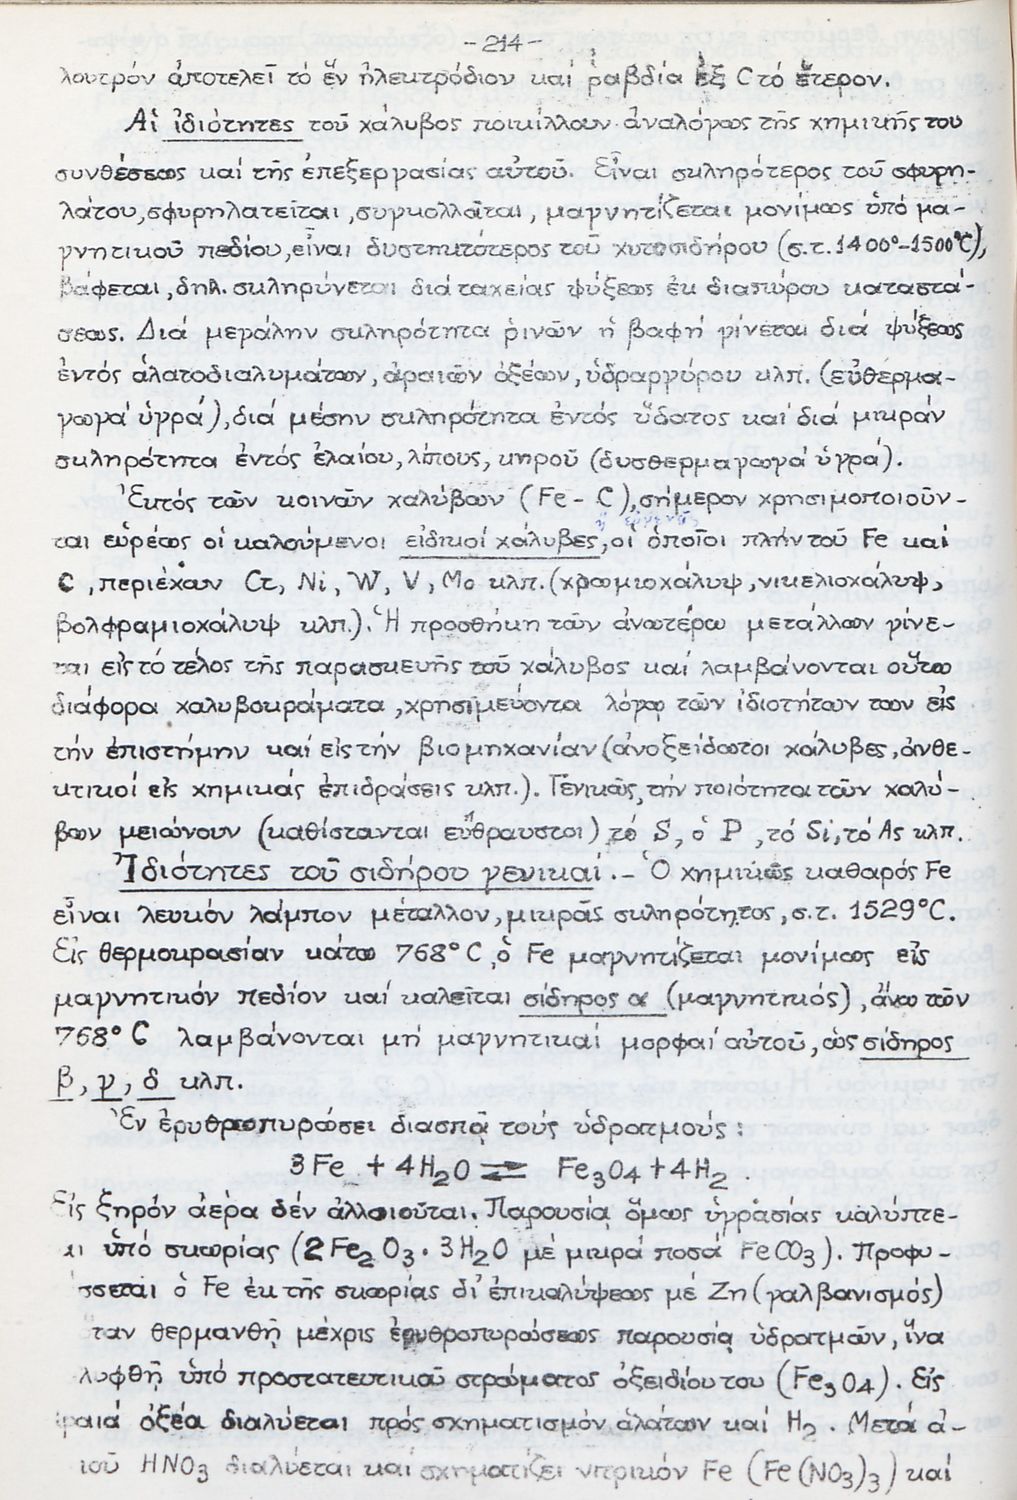 -214-
λουτρόν ἀποτελεῖ τό ἕν ἠλεκτρόδιον καί ῥαβδία ἐξ C τό ἕτερον.
Αἱ ἰδιότητες τοῦ χάλυβος ποικίλλουν ἀναλόγως τῆς χημικῆς του
συνθέσεως καί τῆς ἐπεξεργασίας αὐτοῦ. Εἶναι σκληρότερος τοῦ σφυρη-
λάτου, σφυρηλατεῖται, συγκολλᾶται, μαγνητίζεται μονίμως ὑπό μα-
γνητικοῦ πεδίου, εἶναι δυστηκτότερος τοῦ χυτοσιδήρου (σ.τ. 1400°-1500°C),
βάφεται, δηλ. σκληρύνεται διά ταχείας ψύξεως ἐκ διαπύρου καταστά-
σεως. Διά μεγάλην σκληρότητα ῥινῶν ἡ βαφή γίνεται διά ψύξεως
ἐντός ἁλατοδιαλυμάτων, ἀραιῶν ὀξέων, ὑδραργύρου κλπ. (εὐθερμα-
γωγά ὑγρά), διά μέσην σκληρότητα ἐντός ὕδατος καί διά μικράν
σκληρότητα ἐντός ἐλαίου, λίπους, κηροῦ (δυσθερμαγωγά ὑγρά).
Ἐκτός τῶν κοινῶν χαλύβων (Fe - C), σήμερον χρησιμοποιοῦν-
ται εὐρέως οἱ καλούμενοι εἰδικοί χάλυβες, οἱ ὁποῖοι πλήν τοῦ Fe καί
C, περιέχουν Cr, Ni, W, V, Mo κλπ. (χρωμιοχάλυψ, νικελιοχάλυψ,
βολφραμιοχάλυψ κλπ.). Ἡ προσθήκη τῶν ἀνωτέρω μετάλλων γίνε-
ται εἰς τό τέλος τῆς παρασκευῆς τοῦ χάλυβος καί λαμβάνονται οὕτω
διάφορα χαλυβοκράματα, χρησιμεύοντα λόγῳ τῶν ἰδιοτήτων των εἰς
τήν ἐπιστήμην καί εἰς τήν βιομηχανίαν (ἀνοξείδωτοι χάλυβες, ἀνθε-
κτικοί εἰς χημικάς ἐπιδράσεις κλπ.). Γενικῶς, τήν ποιότητα τῶν χαλύ-
βων μειώνουν (καθίστανται εὔθραυστοι) τό S, ὁ P, τό Si, τό As κλπ.
Ἰδιότητες τοῦ σιδήρου γενικαί.- Ὁ χημικῶς καθαρός Fe
εἶναι λευκόν λάμπον μέταλλον, μικρᾶς σκληρότητος, σ.τ. 1529°C.
Εἰς θερμοκρασίαν κάτω 768°C, ὁ Fe μαγνητίζεται μονίμως εἰς
μαγνητικόν πεδίον καί καλεῖται σίδηρος α (μαγνητικός), ἄνω τῶν
768°C λαμβάνονται μή μαγνητικαί μορφαί αὐτοῦ, ὡς σίδηρος
β, γ, δ κλπ.
Ἐν ἐρυθροπυρώσει διασπᾷ τούς ὑδρατμούς:
3Fe + 4H₂O ⇌ Fe₃O₄ + 4H₂.
Εἰς ξηρόν ἀέρα δέν ἀλλοιοῦται. Παρουσίᾳ ὅμως ὑγρασίας καλύπτε-
αι ὑπό σκωρίας (2Fe₂O₃·3H₂O μέ μικρά ποσά FeCO₃). Προφυ-
σσεται ὁ Fe ἐκ τῆς σκωρίας δι' ἐπικαλύψεως μέ Zn (γαλβανισμός)
ταν θερμανθῇ μέχρις ἐρυθροπυρώσεως παρουσίᾳ ὑδρατμῶν, ἵνα
λυφθῇ ὑπό προστατευτικοῦ στρώματος ὀξειδίου του (Fe₃O₄). Εἰς
ραιά ὀξέα διαλύεται πρός σχηματισμόν ἁλάτων καί H₂. Μετά ἀ-
ιοῦ HNO₃ διαλύεται καί σχηματίζει νιτρικόν Fe (Fe(NO₃)₃) καί